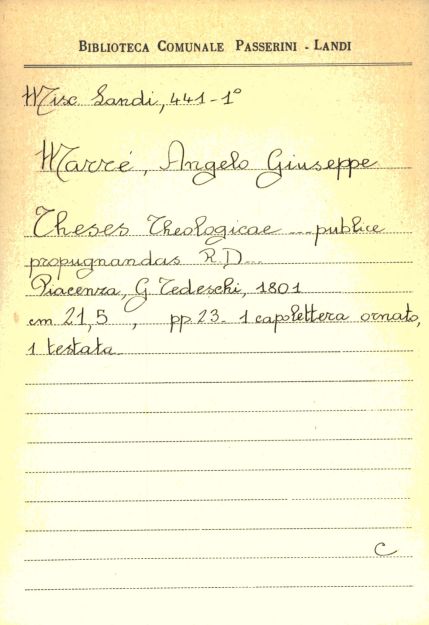 BIBLIOTECA COMUNALE PASSERINI - LANDI
Misc. Landi, 441-1°
Marré, Angelo Giuseppe
Theses Theologicae ... publice
propugnandas R.D...
Piacenza, G. Tedeschi, 1801
cm 21,5 , pp. 23. 1 capolettera ornato,
1 testata.
C